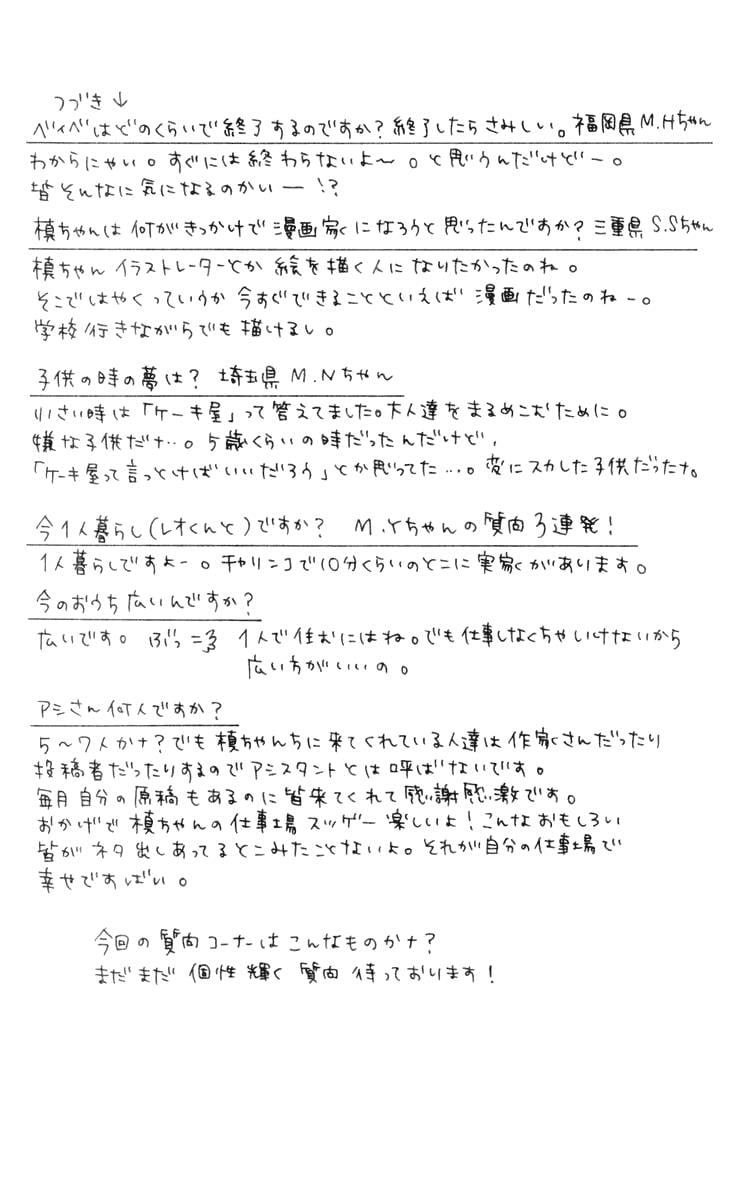 つづき↓
ベイベはどのくらいで終了するのですか?終了したらさみしい。福岡県M.Hちゃん
わからにゃい。すぐには終わらないよ〜。と思うんだけどー。
皆そんなに気になるのかいー!?
槙ちゃんは何がきっかけで漫画家になろうと思ったんですか?三重県S.Sちゃん
槙ちゃんイラストレーターとか絵を描く人になりたかったのね。
そこではやくっていうか今すぐできることといえば漫画だったのねー。
学校行きながらでも描けるし。
子供の時の夢は?埼玉県M.Nちゃん
小さい時は「ケーキ屋」って答えてました。大人達をまるめこむために。
嫌な子供だナ…。5歳くらいの時だったんだけど、
「ケーキ屋って言っとけばいいだろう」とか思ってた…。変にスカした子供だったナ。
今1人暮らし(レオくんと)ですか? M.Yちゃんの質問3連発!
1人暮らしですよー。チャリンコで10分くらいのとこに実家があります。
今のおうち広いんですか?
広いです。ぶっ=3 1人で住むにはね。でも仕事しなくちゃいけないから
広い方がいいの。
アシさん何人ですか?
5〜7人かナ?でも槙ちゃんちに来てくれている人達は作家さんだったり
投稿者だったりするのでアシスタントとは呼ばないです。
毎月自分の原稿もあるのに皆来てくれて感謝感激です。
おかげで槙ちゃんの仕事場スッゲー楽しいよ!こんなおもしろい
皆がネタ出しあってるとこみたことないよ。それが自分の仕事場で
幸せですばい。
今回の質問コーナーはこんなものかナ?
まだまだ個性輝く質問待っております!